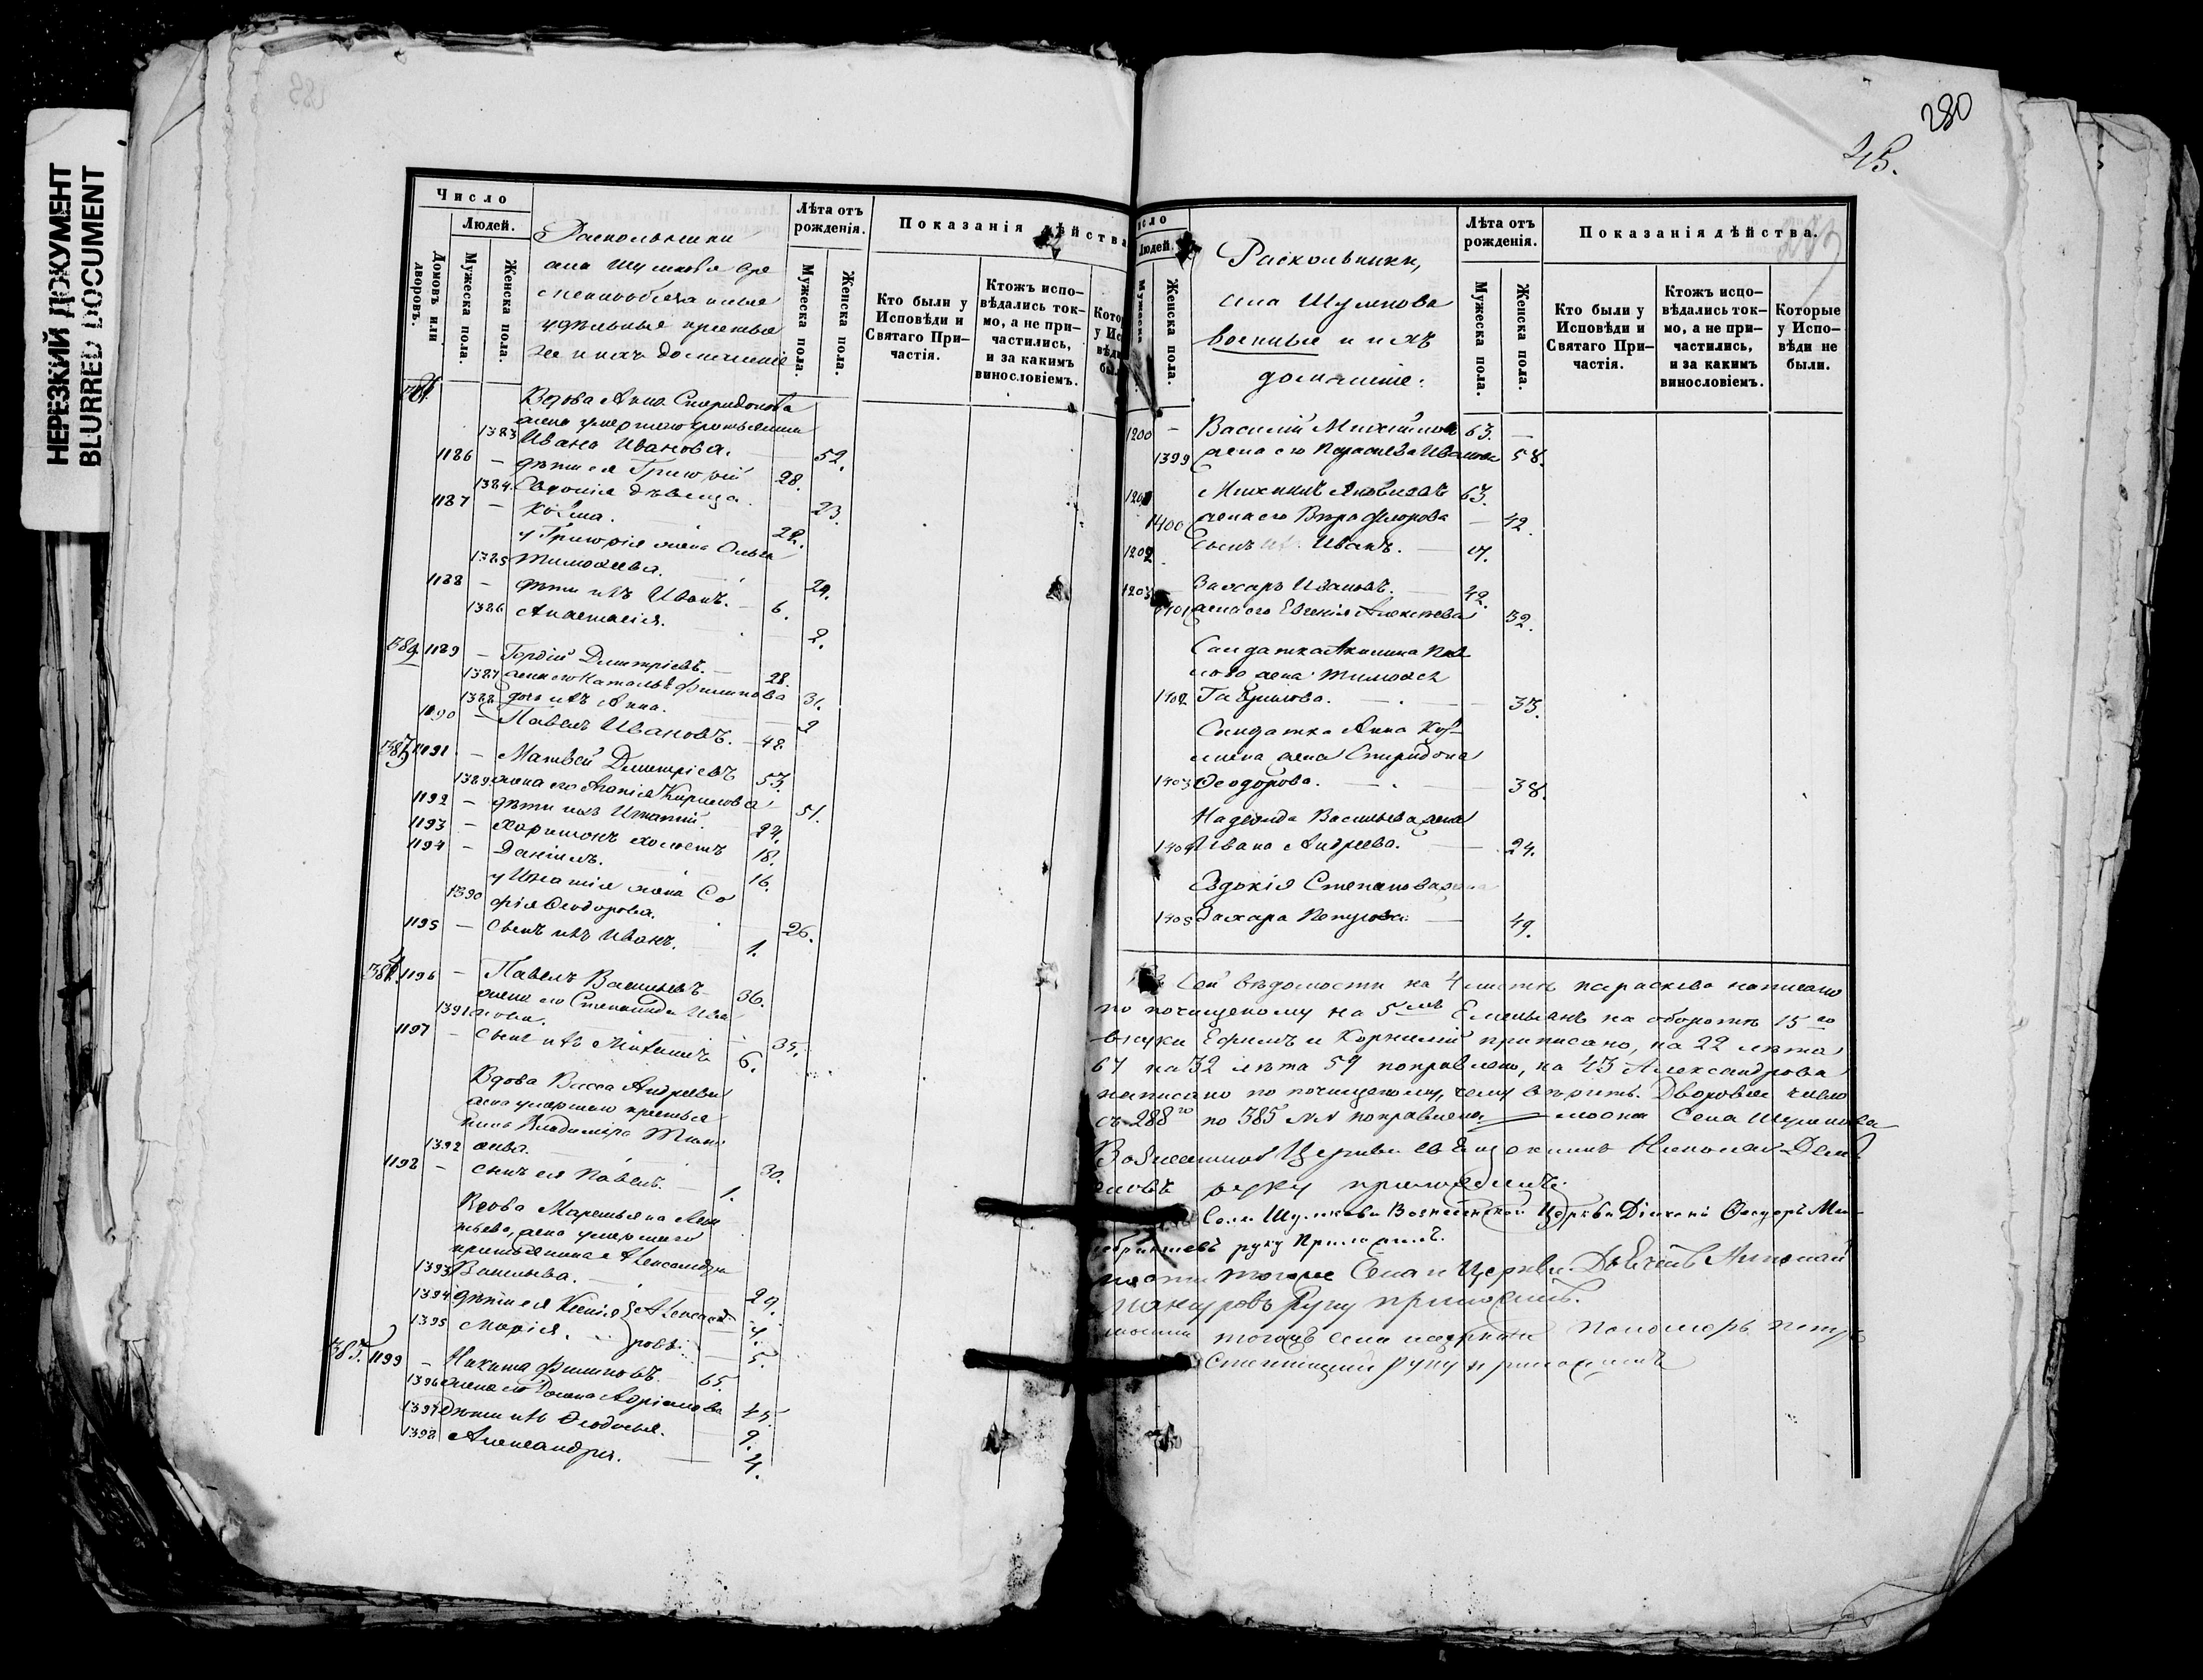 НЕРЕЗКИЙ ДОКУМЕНТ
BLURRED DOCUMENT
Число
Людей.
Домовъ или дворовъ.
Мужеска пола.
Женска пола.
Раскольники
села Шумкова
удѣльные крестья
не и ихъ домашніе
Лѣта отъ рожденія.
Мужеска пола.
Женска пола.
Показанія дѣйства
Кто были у Исповѣди и Святаго Причастія.
Ктожъ исповѣдались токмо, а не причастились, и за какимъ винословіемъ.
Вдова Анна Спиридонова
жена умершаго крестьянина
1383 Ивана Иванова. 52.
1186 – дѣти ея Григорій 28.
1384. Евдокія дѣвица 23.
1187 – Козма. 22.
у Григорія жена Ольга
1385 Тимофеева. 24.
1188 – дѣти ихъ Иванъ. – 6.
1386 Анастасія. 2.
1189 – Гордій Димитріевъ. 28.
1387 жена его Наталья Филипова 31.
1388 дочь ихъ Анна. 2
1190 – Павелъ Ивановъ. – 48.
1191 – Матвей Димитріевъ 53.
1389 жена его Агапія Кирилова 51.
1192 – дѣти ихъ Игнатій. 24.
1193 – Харитонъ холостъ 18.
1194 – Даніилъ. 16.
у Игнатія жена Со
1390 фія Феодорова. 26.
1195 – сынъ ихъ Иванъ. 1.
384. 1196 – Павелъ Васильевъ 36.
жена его Степанида Ива
1391 нова. 35.
1197 – сынъ ихъ Михаилъ 6.
Вдова Васса Андреева
жена умершаго крестья
нина Владимира Тимо
1392 феева. 30.
1198 – сынъ ея Павелъ. 1.
Вдова Маремьяна
жена умершаго
крестьянина Александра
1393 Васильева. 29.
1394 дѣти ея Ксенія Александ
1395 Марія. ровы. 5.
385. 1199 – Никита Филиповъ. 65.
1396 жена его Домна Адріанова 45.
1397 дѣти ихъ Феодосья. 9.
1398 Александра. 4.
280
45.
Людей.
Женска пола.
Раскольники,
села Шумкова
военные и ихъ
домашніе:
Лѣта отъ рожденія.
Мужеска пола.
Женска пола.
Показанія дѣйства.
Кто были у Исповѣди и Святаго Причастія.
Ктожъ исповѣдались токмо, а не причастились, и за какимъ винословіемъ.
Которые у Исповѣди не были.
1200 – Василій Михайловъ 63. –
1399 жена его Параскева Иванова 58.
1201 Михаилъ Яковлевъ 63.
1400 жена его Вѣра Флорова – 42.
1202 Сынъ Иванъ. – 17.
1203 Захаръ Ивановъ. – 42.
1401 жена его Евгенія Алексѣева 32.
Солдатка Акилина
жена Тимофея
1402 Гаврилова. – 33.
Солдатка Анна Коз
мина жена Спиридона
1403 Феодорова. – 38.
Надежда Васильева жена
1404 Ивана Андреева. – 24.
Евдокія Степанова жена
1405 Захара – 49.
сей вѣдомости на 4 листѣ Параскева написано
по почищеному на 5мъ Емельянъ на оборотѣ 15го
внуки Ефимъ и Корнилій приписано, на 22 лѣта
67 на 32 лѣта 59 поправлено, на 43 Александрова
написано по почищеному, чему вѣрить. Дворовое число
съ 288го по 385 № поправлено. Села Шумкова
Вознесенской Церкви Священникъ Николай
руку приложилъ.
Села Шумкова Вознесенской Церкви Діаконъ Феодоръ
руку Приложилъ.
тогоже Села и Церкви Дьячекъ
руку приложилъ.
тогожъ села и церкви Пономарь Петръ
руку приложилъ